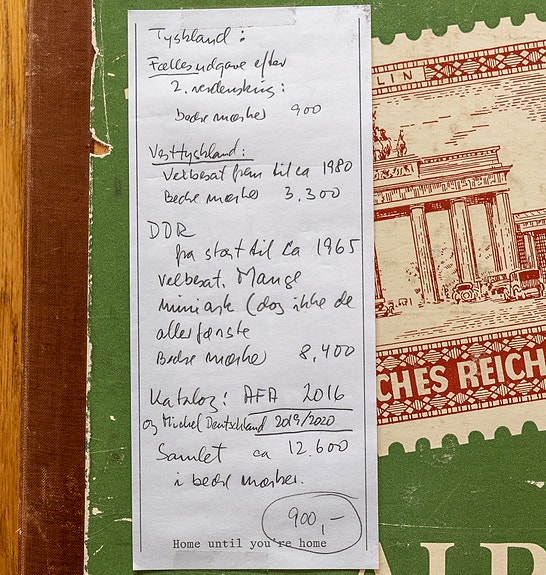 Tyskland:
Fællesudgave efter
2. verdenskrig:
bedre mærker 900
Vesttyskland:
Velbesat frem til ca 1980
Bedre mærker 3.300
DDR
fra start til ca 1965
velbesat. Mange
miniark (dog ikke de
allerførste
Bedre mærker 8,400
Katalog: AFA 2016
og Michel Deutschland 2019/2020
Samlet ca 12.600
i bedre mærker.
900,-
Home until you're home
LIN
CHES REICH